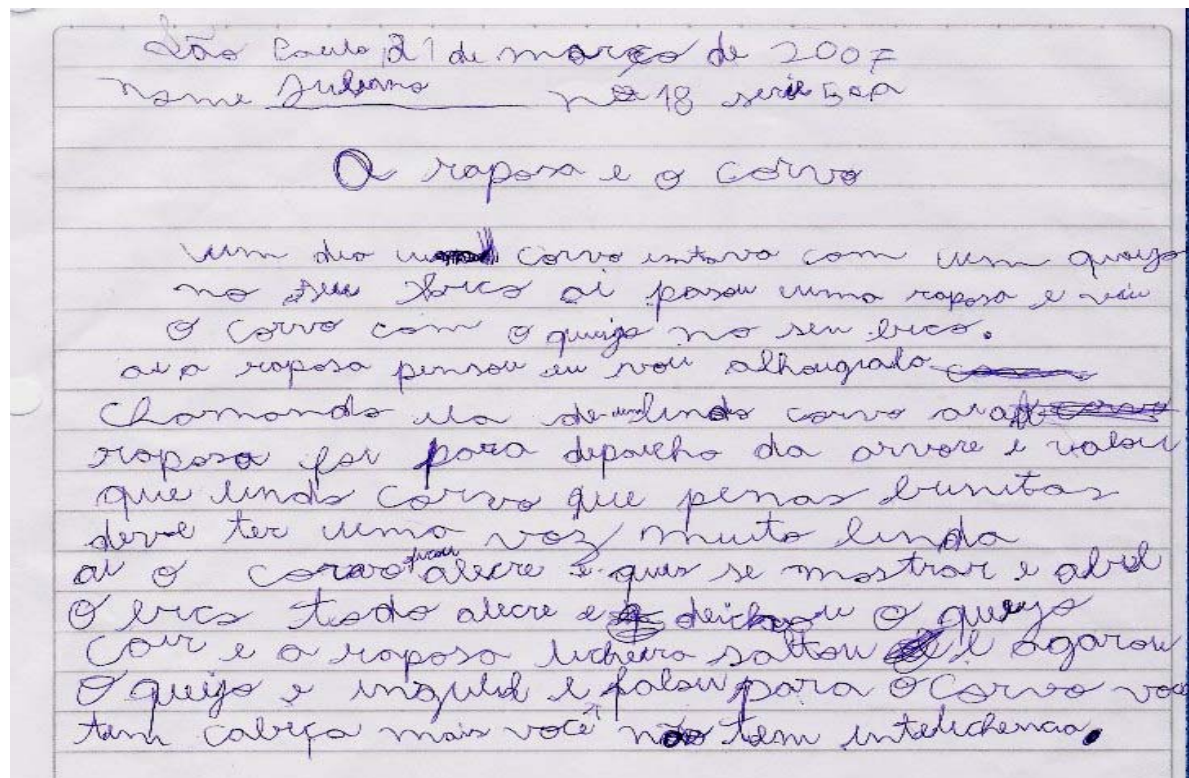 São Paulo, 21 de março de 2007
nome Juliano nº 18 serie 5ªA
A raposa e o corvo
um dia um corvo estava com um queijo
no seu bico ai pasou uma raposa e viu
O corvo com o queijo no seu bico.
ai a raposa pensou eu vou
chamando de lindo corvo
raposa foi para depaicho da arvore e valou
que lindo corvo que penas bunitas
deve ter uma voz muito linda
ai o corvo ficou alecre e quis se mostrar e abril
O bico todo alecre e deichou o queijo
cair e a raposa licheira saltou e agarou
O queijo e inguliu e falou para o corvo voce
tem cabeça mais você não tem intelichencia.